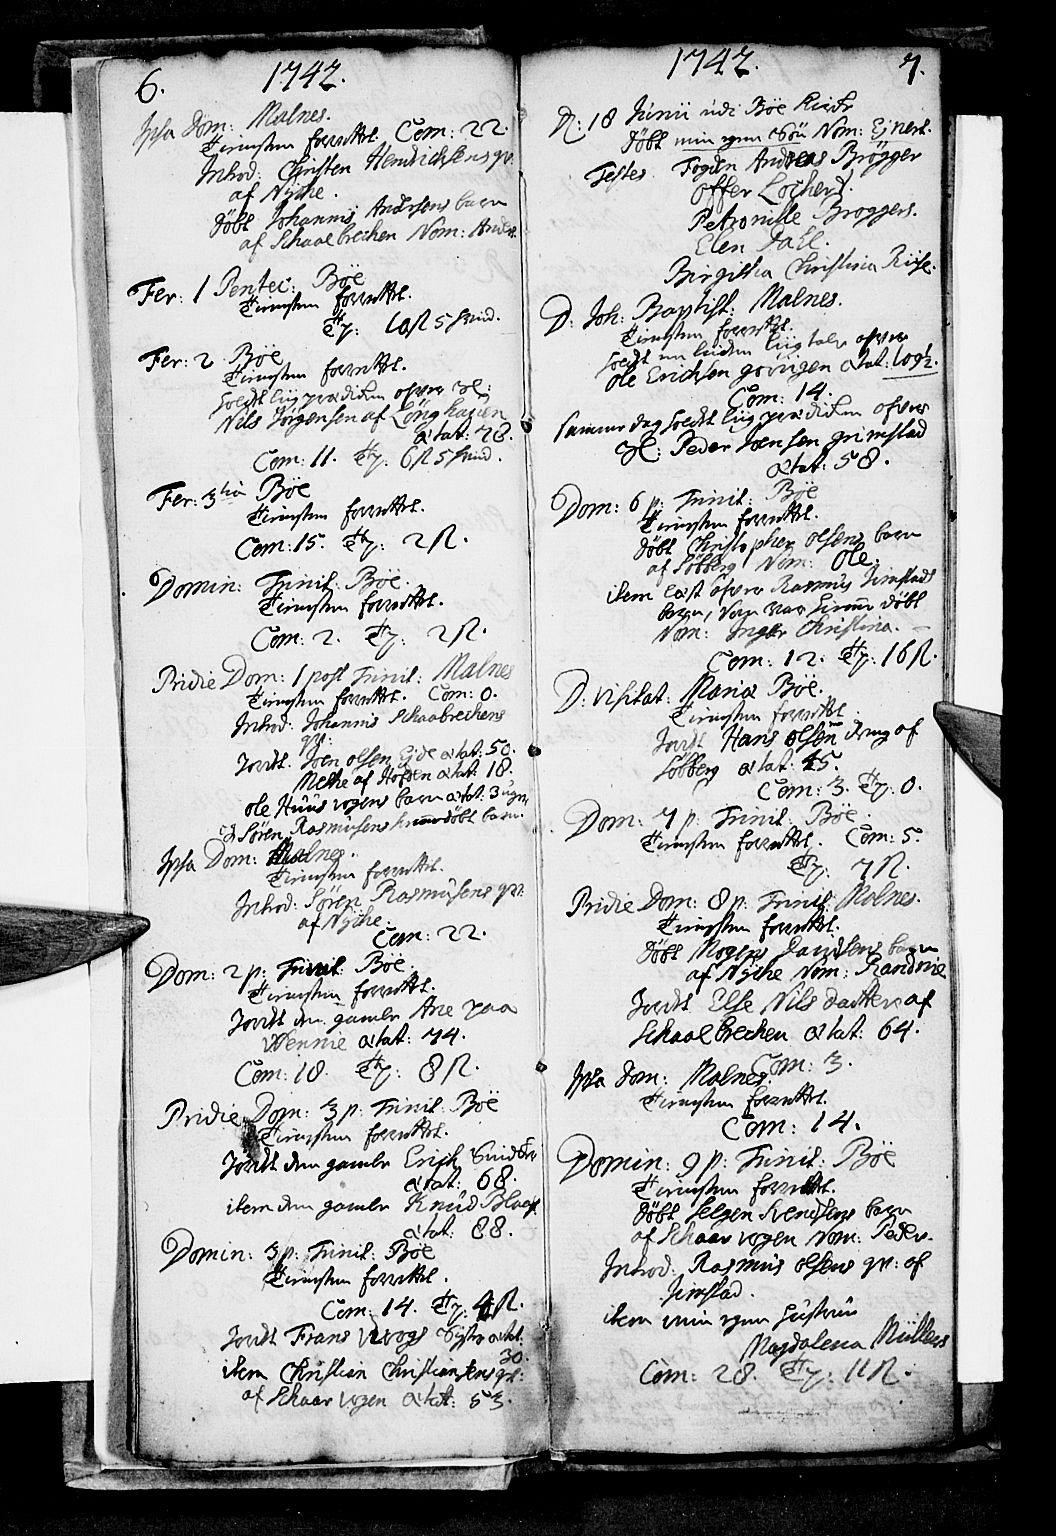 6. 1742.
Ipsa Dom: Malnes.
Tienesten forrettet. Com: 22.
Introd: Christen Hendrichsens qv:
af Nyche.
döbt Johannis Andersens barn
af Schaalbrechen Nom: Anders.
Fer: 1 Pentec: Böe
Tienesten forrettet.
Ty: 10 5 skind.
Fer: 2 Böe
Tienesten forrettet.
holdt liigprædichen ofver Sl:
Nils Jörgensen af
ætat: 78.
Com: 11. Ty: 6 5 skind.
Fer: 3tia Böe
Tienesten forrettet.
Com: 15. Ty: 2
Domin: Trinit: Böe.
Tienesten forrettet.
Com: 2. Ty: 2
Pridie Dom: 1 post Trinit: Malnes
Tienesten forrettet. Com: 0.
Introd: Johannis Schaabrechens
qv:
Jordt. Joen Olsen Eide ætat: 50.
Mette af Hofden ætat: 18.
Ole Huus vogens barn ætat: 3 uger
& Sören Rasmusens hiemedöbt barn.
Ipsa Dom: Malnes.
Tienesten forrettet.
Introd: Sören Rasmusens qv:
af Nyche.
Com: 22.
Dom: 2 p: Trinit: Böe.
Tienesten forrettet.
Jordt den gamle Ane paa
Wennie ætat: 74.
Com: 18. Ty: 8
Pridie Dom: 3 p: Trinit: Böe
Tienesten forrettet.
Jordt den gamle Erich
ætat: 68.
item den gamle Knud
ætat: 88.
Domin: 3 p: Trinit: Böe
Tienesten forrettet.
Com: 14. Ty: 4
Jordt Frans Syster ætat:
30.
item Christian Christiansens qv:
af Schaar vogen ætat: 53.
1742. 7.
D: 18 Junii udi Böe Kirche
döbt min egen Sön Nom: Ejnert.
Testes Fogden Andreas Brögger
Offer Lochert.
Petronille Broggers.
Elen Dahl.
Birgitha Christina
D: Joh: Baptist: Malnes.
Tienesten forrettet.
holdt en liden liigtale ofver
Ole Erichsen ætat: 10 9½.
Com: 14.
samme dag holdt liigprædichen ofver
Sl: Peder Joensen grimstad
ætat: 58.
Dom: 6 p: Trinit: Böe
Tienesten forrettet.
döbt Christopher Olsens barn
af Söberg Nom: Ole.
item læst ofver Rasmus Jimstads
barn, som var hieme döbt
Nom: Inger Christina.
Com: 12. Ty: 16
D: visitat: Mariæ Böe.
Tienesten forrettet.
Jordt Hans Olsen dreng af
Söberg ætat: 15.
Com: 3. Ty: 0.
Dom: 7 p: Trinit: Böe.
Tienesten forrettet. Com: 5.
Ty: 7
Pridie Dom: 8 p: Trinit: Malnes.
Tienesten forrettet.
döbt Mogens barn
af Nyche Nom: Randvie
Jordt Else Nils datter af
Schaalbrechen ætat: 64.
Com: 3.
Ipsa Dom: Malnes.
Tienesten forrettet.
Com: 14.
Domin: 9 p: Trinit: Böe
Tienesten forrettet.
döbt Helgen Svendsens barn
af Schaar vogen Nom: Peder.
Introd: Rasmus Olsens qv: af
Jimstad.
item min egen Hustrue
Magdalena Müllers
Com: 28. Ty: 11